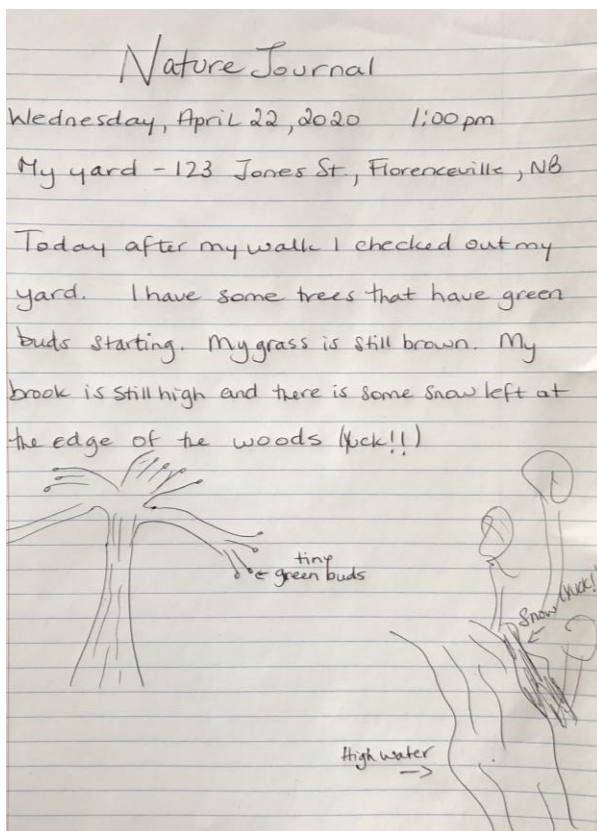 Nature Journal
Wednesday, April 22, 2020 1:00pm
My yard - 123 Jones St., Florenceville, NB
Today after my walk I checked out my
yard. I have some trees that have green
buds starting. My grass is still brown. My
brook is still high and there is some snow left at
the edge of the woods (Yuck!!)
tiny
green buds
Snow (Yuck!
High water